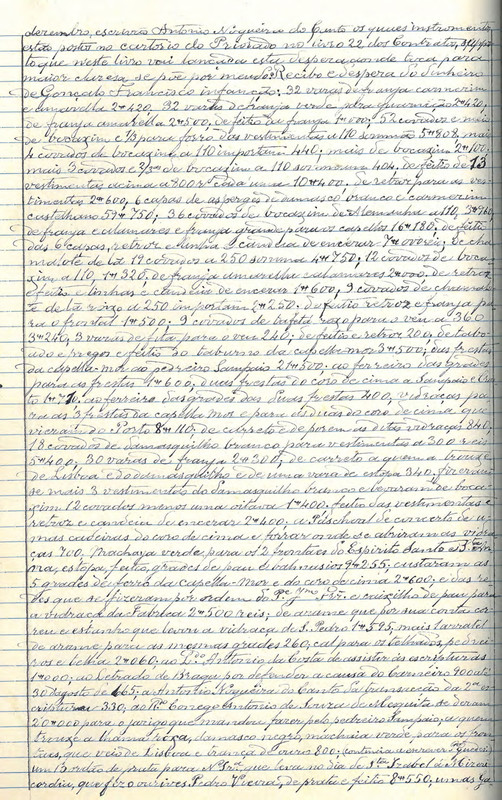 dezembro, escrivão Antonio Nogueira do Canto os quaes instrumentos
estão postos no cartorio do Priorado no livro 22 dos Contratos,
to que neste livro vai lançada esta despeza de Roca para
maior clareza se põe por mendo: Recibo e despeza do dinheiro
de Gonçalo Francisco infanção: 32 varas de franja carmezim
e amarella 2#420, 32 varas de franja verde para guarnição 2#430,
de franja amarella 2#500, de feitio de franja 1#000, 52 covados e meio
de bocaxim e 1/3 para forro dos vestimentas a 110 somma 5#808, mais
4 covados de bocaxim a 110 importam 440, mais de bocaxim 2#100,
mais 3 covados e 2/3 de bocaxim a 110 somma 404, de feitio de 13
vestimentas acima a 800 rs cada uma 10#400, de retroz para as ves-
timentas 2#600, 6 capas de asperges de damasco branco e carmezim
castelhano 57#750, 36 covados de bocaxim de Alemanha a 110, 3#960
de franja e alamares e franja grande para os capellos 16#180, de feitio
das 6 capas, retroz e linha e candeia de encerar 7#000 reis; de cha-
malote de lã 19 covados a 250 somma 4#750, 12 covados de boca-
xim a 110, 1#320, de franja amarella e alamares 2#000, de retroz
e feitio e linhas e candeia de encerar 1#600, 9 covados de chamalo-
te de lã roxo a 250 importam 2#250, de feitio retroz e franja pa-
ra o frontal 1#500; 9 covados de tafetá roxo para o véu a 360
3#240, 3 varas de fita para o veu 240; de feitio e retroz 200, de tabo-
ado e pregos e feitio do taburno da capella-mor 3#500; das frestas
da capella-mor ao pedreiro Sampaio 21#500, ao ferreiro das grades
para as frestas 1#600, duas frestas do coro de cima a Sampaio e
ao ferreiro das grades das duas frestas 400, vidraças pa-
ra as 3 frestas da capella mor e para as duas do coro de cima que
vieram do Porto 8#110, de carreto e de porem as ditas vidraças 840,
18 covados de damasquilho branco para vestimentas a 300 reis
5#400, 30 varas de franja 2#300, de carreto a quem a trouxe
de Lisboa e do damasquilho e de uma vara de estopa 340, fizeram-
se mais 3 vestimentas do damasquilho branco e levaram de boca-
xim 12 covados menos uma oitava 1#400, feitio das vestimentas e
retroz e candeia de encerar 2#400, a Paschoal de concerto de u-
mas cadeiras do coro de cima e forrar onde se abriram as vidra-
ças 700, Machaya verde para os 2 frontaes do Espirito Santo e S.
estopa, feitio, grades de pau 9#255; custaram as
5 grades de ferro da capella-mor e do coro de cima 2#600; e das re-
des que se fizeram por ordem do Pe. e caixilho de pau para
a vidraça da Fabrica 2#500 reis; de arame que por sua conta cor-
reu e estanho que levou a vidraça de S. Pedro 1#595, mais 1 arratel
de arame para as mesmas grades 260, cal para os telhados, pedrei-
ros e telha 2#060, ao Ldo Antonio da Costa de assistir ás escripturas
1#000, ao letrado de Braga por defender a causa do Carneiro 900 até
30 agosto de 665; a Antonio Nogueira do Canto da transacção da 2ª es-
criptura 330, ao Rdo Conego Antonio de Souza de Mesquita se deram
20#000 para o jazigo que mandou fazer pelo pedreiro Sampaio, a quem
trouxe a lhama roxa, damasco negro, machaia verde, para os fron-
taes, que veio de Lisboa e trança de ouro 800;
um Bordão de prata para N. Srª que leva no dia de Stª Isabel á Miseri-
cordia, que fez o ourives Pedro Vieira, de prata e feitio 8#550, umas